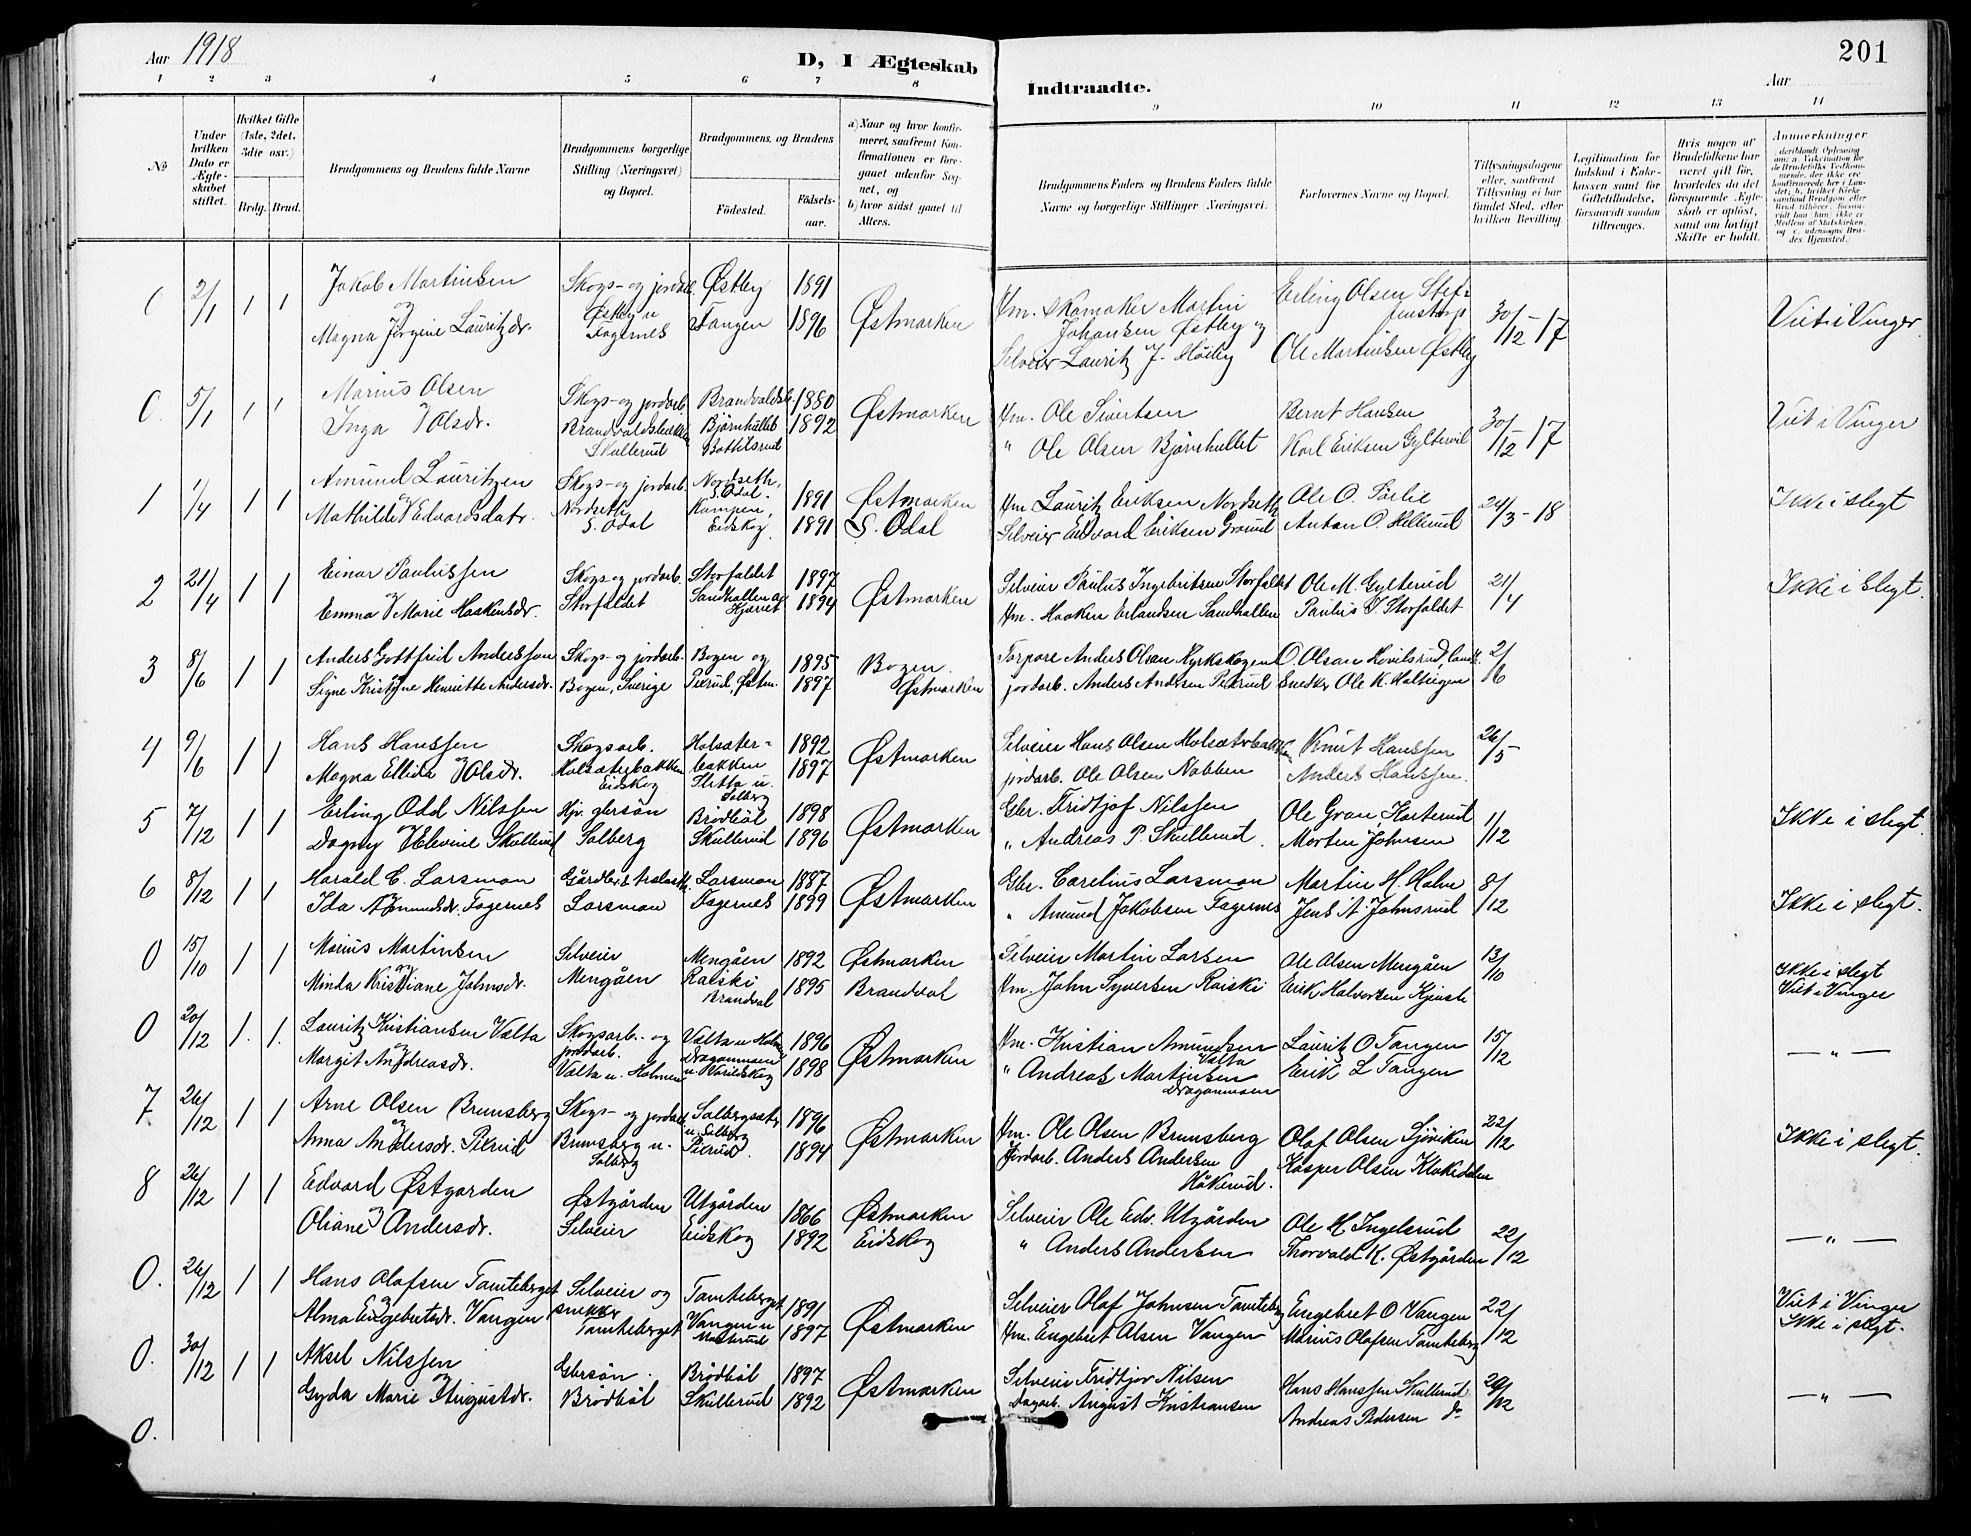 Aar 1918
D, I Ægteskab
Indtraadte.
Aar
201
1 2 3 4 5 6 7 8 9 10 11 12 13 14
No
Under hvilken Dato er Ægteskabet stiftet.
Hvilket Gifte (1ste, 2det, 3die osv.)
Brdg. Brud.
Brudgommens og Brudens fulde Navne
Brudgommens borgerlige Stilling (Næringsvei) og Bopæl.
Brudgommens og Brudens
Fødested.
Fødselsaar.
a) Naar og hvor konfirmeret, saafremt Konfirmationen er foregaaet udenfor Sognet, og
b) hvor sidst gaaet til Alters.
Brudgommens Faders og Brudens Faders fulde Navne og borgerlige Stillinger Næringsvei.
Forlovernes Navne og Bopæl.
Tillysningsdagene eller, saafremt Tillysning ei har fundet Sted, efter hvilken Bevilling.
Legitimation for Indskud i Enkekassen samt for Giftetilladelse, forsaavidt saadan tiltrænges.
Hvis nogen af Brudefolkene har været gift før, hvorledes da det foregaaende Ægteskab er opløst, samt om lovligt Skifte er holdt.
Anmerkninger
0 2/1 1 1 Jakob Martinsen og Magna Jørgine Lauritzdr. Skogs- og jordarb. Østby u Fagernes Østby Tangen 1891 1896 Østmarken Hm. Skomaker Martin Johansen Østby og Selveier Lauritz J. Høiby Erling Olsen Ole Martinsen Østby 30/12-17 Viet i Vinger
0. 5/1 1 1 Marius Olsen og Inga Olsdr. Skogs- og jordarb. Brandvoldsbakken Skullerud Brandvoldsb. Bjørnhullet Bottilsrud 1880 1892 Østmarken Hm. Ole Sivertsen " Ole Olsen Bjørnhullet Bernt Hansen Karl Eriksen 30/12-17 Viet i Vinger
1 1/4 1 1 Amund Lauritzen og Mathilde Edvardsdatr. Skogs- og jordarb. Nordseth S. Odal Nordseth, S. Odal. Kampen, Eidskog 1891 1891 Østmarken S. Odal Hm Lauritz Eriksen Nordseth Selveier Edvard Eriksen Ole O. Sørlie Anton O. Hellerud 24/3-18 Ikke i slegt
2 21/4 1 1 Einar Paulussen og Emma Marie Haakensdr. Skogs og jordarb. Storfaldet Storfaldet Sandhallen 1897 1894 Østmarken Selveier Paulus Ingebritsen Storfaldet Hm. Haaken Erlandsen Sandhallen Ole M. Gylterud Paulus I Storfaldet 21/4 Ikke i slegt.
3 8/6 1 1 Anders Gottfrid Anderssøn og Signe Kristine Henriette Andersdr. Skogs- og jordarb. Bogen, Sverige Bogen og Pilrud, Østm. 1895 1897 Bogen. Østmarken Torpare Anders Olsen Kyrkskogen jordarb. Anders Andersen Pilrud O. Olsan Snedker Ole K. 2/6
4 9/6 1 1 Hans Hanssen og Magna Ellida Olsdr. Skogsarb. Holsæterbakken Eidskog Holsæterbakken Flitta u. Solberg 1892 1897 Østmarken Selveier Hans Olsen Holsæterbakken jordarb. Ole Olsen Nabben Knut Hanssen Anders Hanssen. 26/5
5 7/12 1 1 Erling Odd Nilssen og Dagny Elevine Skullerud Hjv. gbrsøn Solberg Brødbøl Skullerud 1898 1896 Østmarken Gbr. Fridtjof Nilssen " Andreas P. Skullerud. Ole Gran Morten Johnsen 1/12 Ikke i slegt.
6 8/12 1 1 Harald C. Larsmon og Ida Amundsdr. Fagernes Larsmon Larsmon Fagernes 1887 1899 Østmarken Gbr. Carelius Larsmon " Amund Jakobsen Fagernes Martin H. Holm Jens A. Johnsrud 8/12 Ikke i slegt.
0 15/10 1 1 Marius Martinsen og Minda Kristiane Johnsdr. Selveier Mengåen Mengåen Raiski Brandval 1892 1895 Østmarken Brandval Selveier Martin Larsen Hm. John Syversen Raiski Ole Olsen Mengåen Erik Halvorsen 13/10 Ikke i slegt Viet i Vinger
0 20/12 1. 1. Lauritz Kristiansen Valta og Margit Andreasdr. Skogsarb.- og jordarb. Valta u. Holmen Valta u Holm Dragonmoen u Varildskog 1896 1898 Østmarken Hm. Kristian Amundsen Valta " Andreas Martinsen Dragonmoen Lauritz O Tangen Erik L Tangen 15/12 — " —
7 26/12 1 1 Arne Olsen Brunsberg og Anna Andersdr. Pilrud Skogs- og jordarb Brunsberg u. Solberg Solbergsæt. u. Solberg Pilrud. 1896 1894 Østmarken Hm. Ole Olsen Brunsberg Jordarb. Anders Andersen Håkerud. Olaf Olsen Sjøviken Kasper Olsen 22/12 Ikke i slegt.
8 26/12 1 1 Edvard Østgården og Oliane Andersdr. Østgården Selveier Utgården Eidskog 1866 1892 Østmarken Eidskog Selveier Ole Edv. Utgården " Anders Andersen Ole H. Ingelsrud Thorvald K. Østgården 22/12 — " —
0. 26/12 1 1 Hans Olafsen Tamteberget og Alma Engebretsdr. Vangen Selveier og snekker Tamteberget Tamteberget Vangen u 1891 1897 Østmarken Selveier Olaf Johnsen Tamteberg Hm. Engebret Olsen Vangen Engebret O Vangen Marius Olafsen Tamteberg 22/12 Viet i Vinger Ikke i slegt.
0. 30/12 1 1 Aksel Nilssen og Gyda Marie Augustdr. Gbrsøn. Brødbøl Brødbøl Skullerud 1897 1892 Østmarken Selveier Fridtjov Nilsen Dagarb. August Kristiansen Hans Hanssen Skullerud Andreas Pedersen do 29/12 — " —
0.